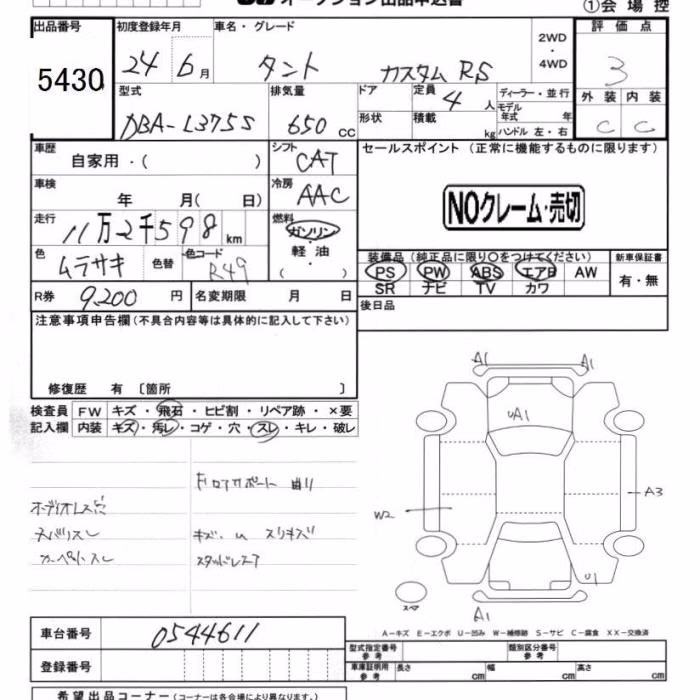 オークション出品申込書
①会場控
出品番号
5430
初度登録年月
24 6月
車名・グレード
タント カスタム RS
2WD
・
4WD
評価点
3
型式
DBA-L375S
排気量
650 CC
ドア
形状
定員 4 人
積載 kg
ディーラー・並行
モデル年式 年
ハンドル 左・右
外装 内装
C C
車歴
自家用・( )
シフト
CAT
セールスポイント(正常に機能するものに限ります)
NOクレーム・売切
車検
年 月( 日)
冷房
AAC
走行
11万2千598km
燃料
ガソリン
軽油
( ・ )
色
ムラサキ
色替
色コード
R49
装備品(純正品に限り○をつけてください)
PS PW ABS エアB AW
SR ナビ TV カワ
新車保証書
有・無
R券 9,200 円
名変期限 月 日
後日品
注意事項申告欄(不具合内容等は具体的に記入して下さい)
修復歴 有 〔箇所 〕
検査員記入欄
FW キズ・飛石・ヒビ割・リペア跡・×要
内装 キズ・汚レ・コゲ・穴・スレ・キレ・破レ
Fロアサポート曲り
オーディオレス穴
ネバリスレ
カーペットスレ
キズ.U スリキズ
スタッドレス7
A1 A1
UA1
A3
W2
U1
A1
スペア
A-キズ E-エクボ U-凹み W-補修跡 S-サビ C-腐食 XX-交換済
車台番号
0544611
登録番号
型式指定番号 参考
類別区分番号 参考
車庫証明用 参考
長さ cm
幅 cm
高さ cm
希望出品コーナー(コーナーは各会場により異なります。)